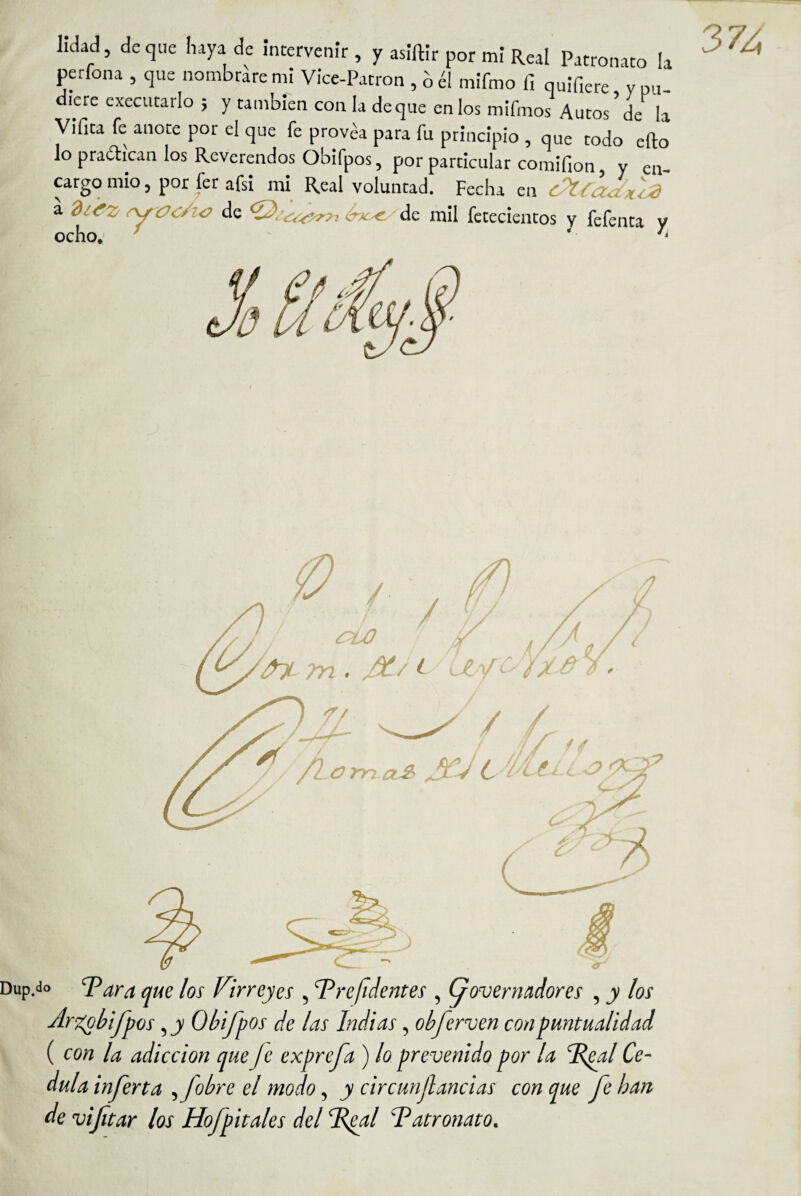 374
lidad, de que haya de intervenir, y asiſtir por mi Real Patronato la
perſona, que nombràre mi Vice-Patron, ò él miſmo ſi quiſiere, y pu-
diere executarlo; y tambien con la de que en los miſmos Autos de la
Viſita ſe anote por el que ſe provèa para ſu principio, que todo eſto
lo practìcan los Reverendos Obiſpos, por particular comiſion, y en-
cargo mio, por ſer aſsi mi Real voluntad. Fecha en Madrid
à diez y ocho de Diciembre de mil ſetecientos y ſeſenta y
ocho.
Yo El Rey
P.r m.do del Rey Nro S.r
Thomas del Mello
Dup.do Para que los Virreyes, Preſidentes, Governadores, y los
Arzobiſpos, y Obiſpos de las Indias, obſerven con puntualidad
( con la adiccion que ſe expreſa ) lo prevenido por la Real Ce-
dula inſerta, ſobre el modo, y circunſtancias con que ſe han
de viſitar los Hoſpitales del Real Patronato.